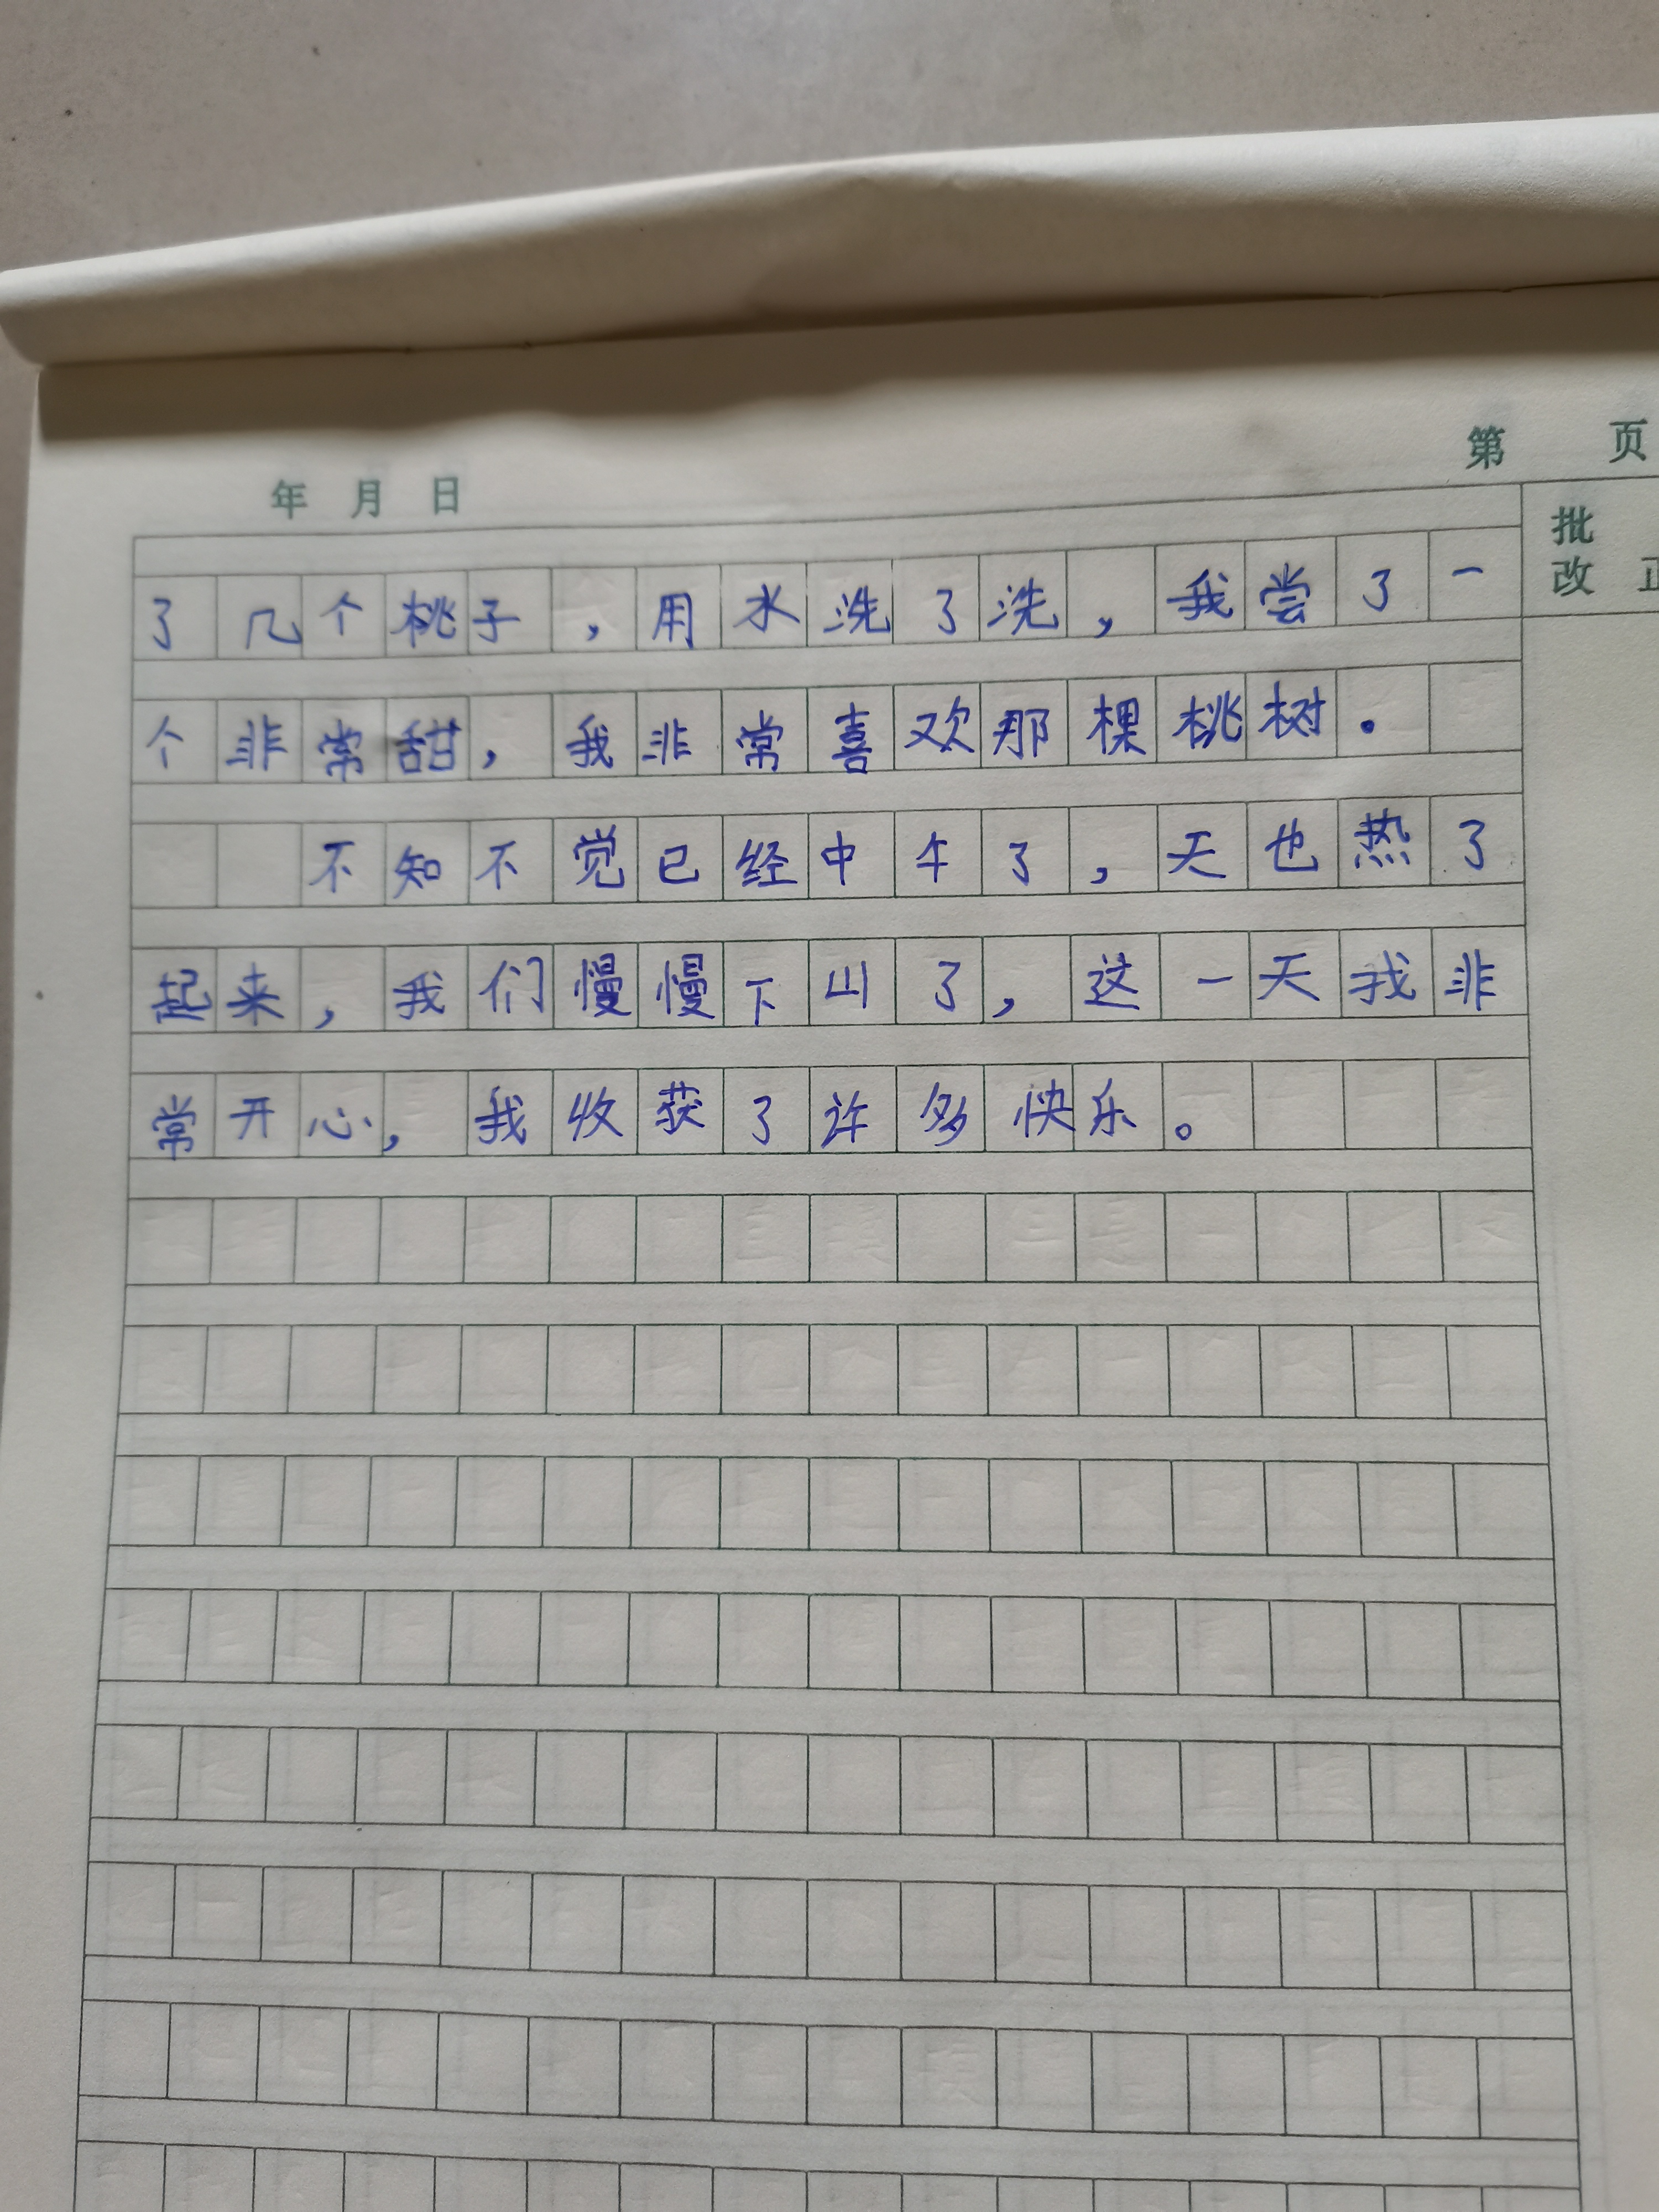 第 页
年 月 日
批
改 正
了几个桃子，用水洗了洗，我尝了一
个非常甜，我非常喜欢那棵桃树。
不知不觉已经中午了，天也热了
起来，我们慢慢下山了，这一天我非
常开心，我收获了许多快乐。